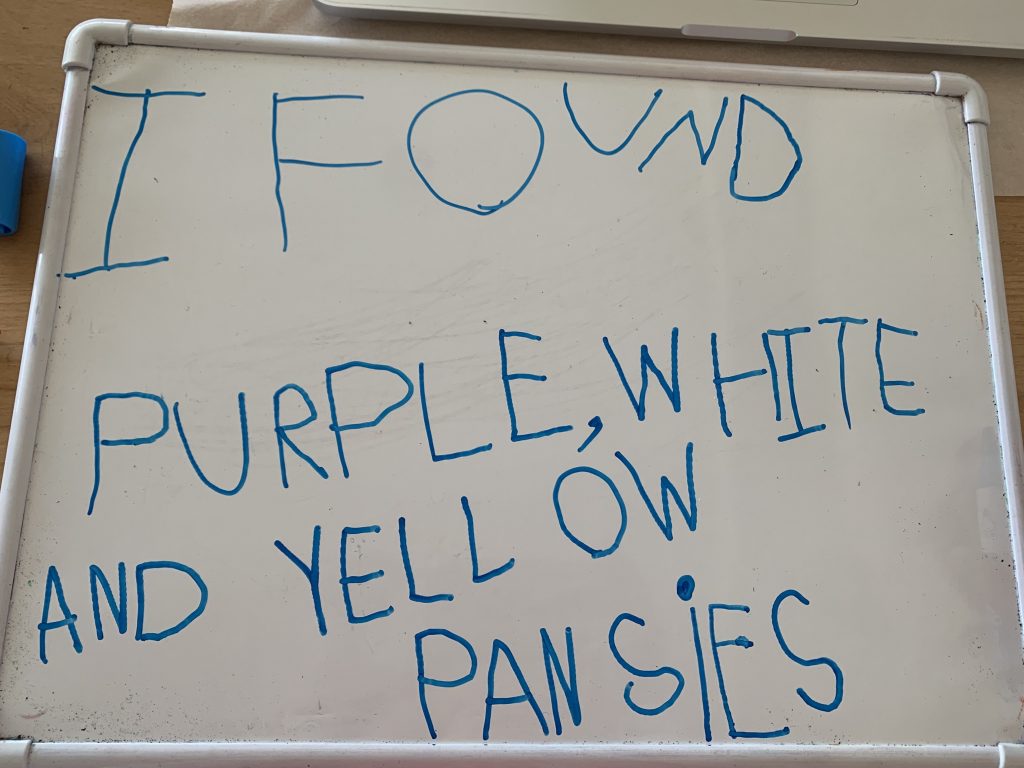 I FOUND
PURPLE, WHITE
AND YELLOW
PANSiES